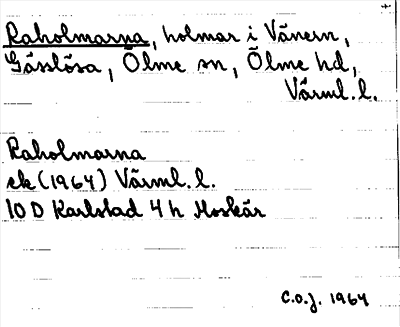 Raholmarna, holmar i Vänern,
Gässlösa, Ölme sn, Ölme hd,
Värml. l.
Raholmarna
ek (1964) Värml. l.
10 D Karlstad 4 h Moskär
C.O.J. 1964